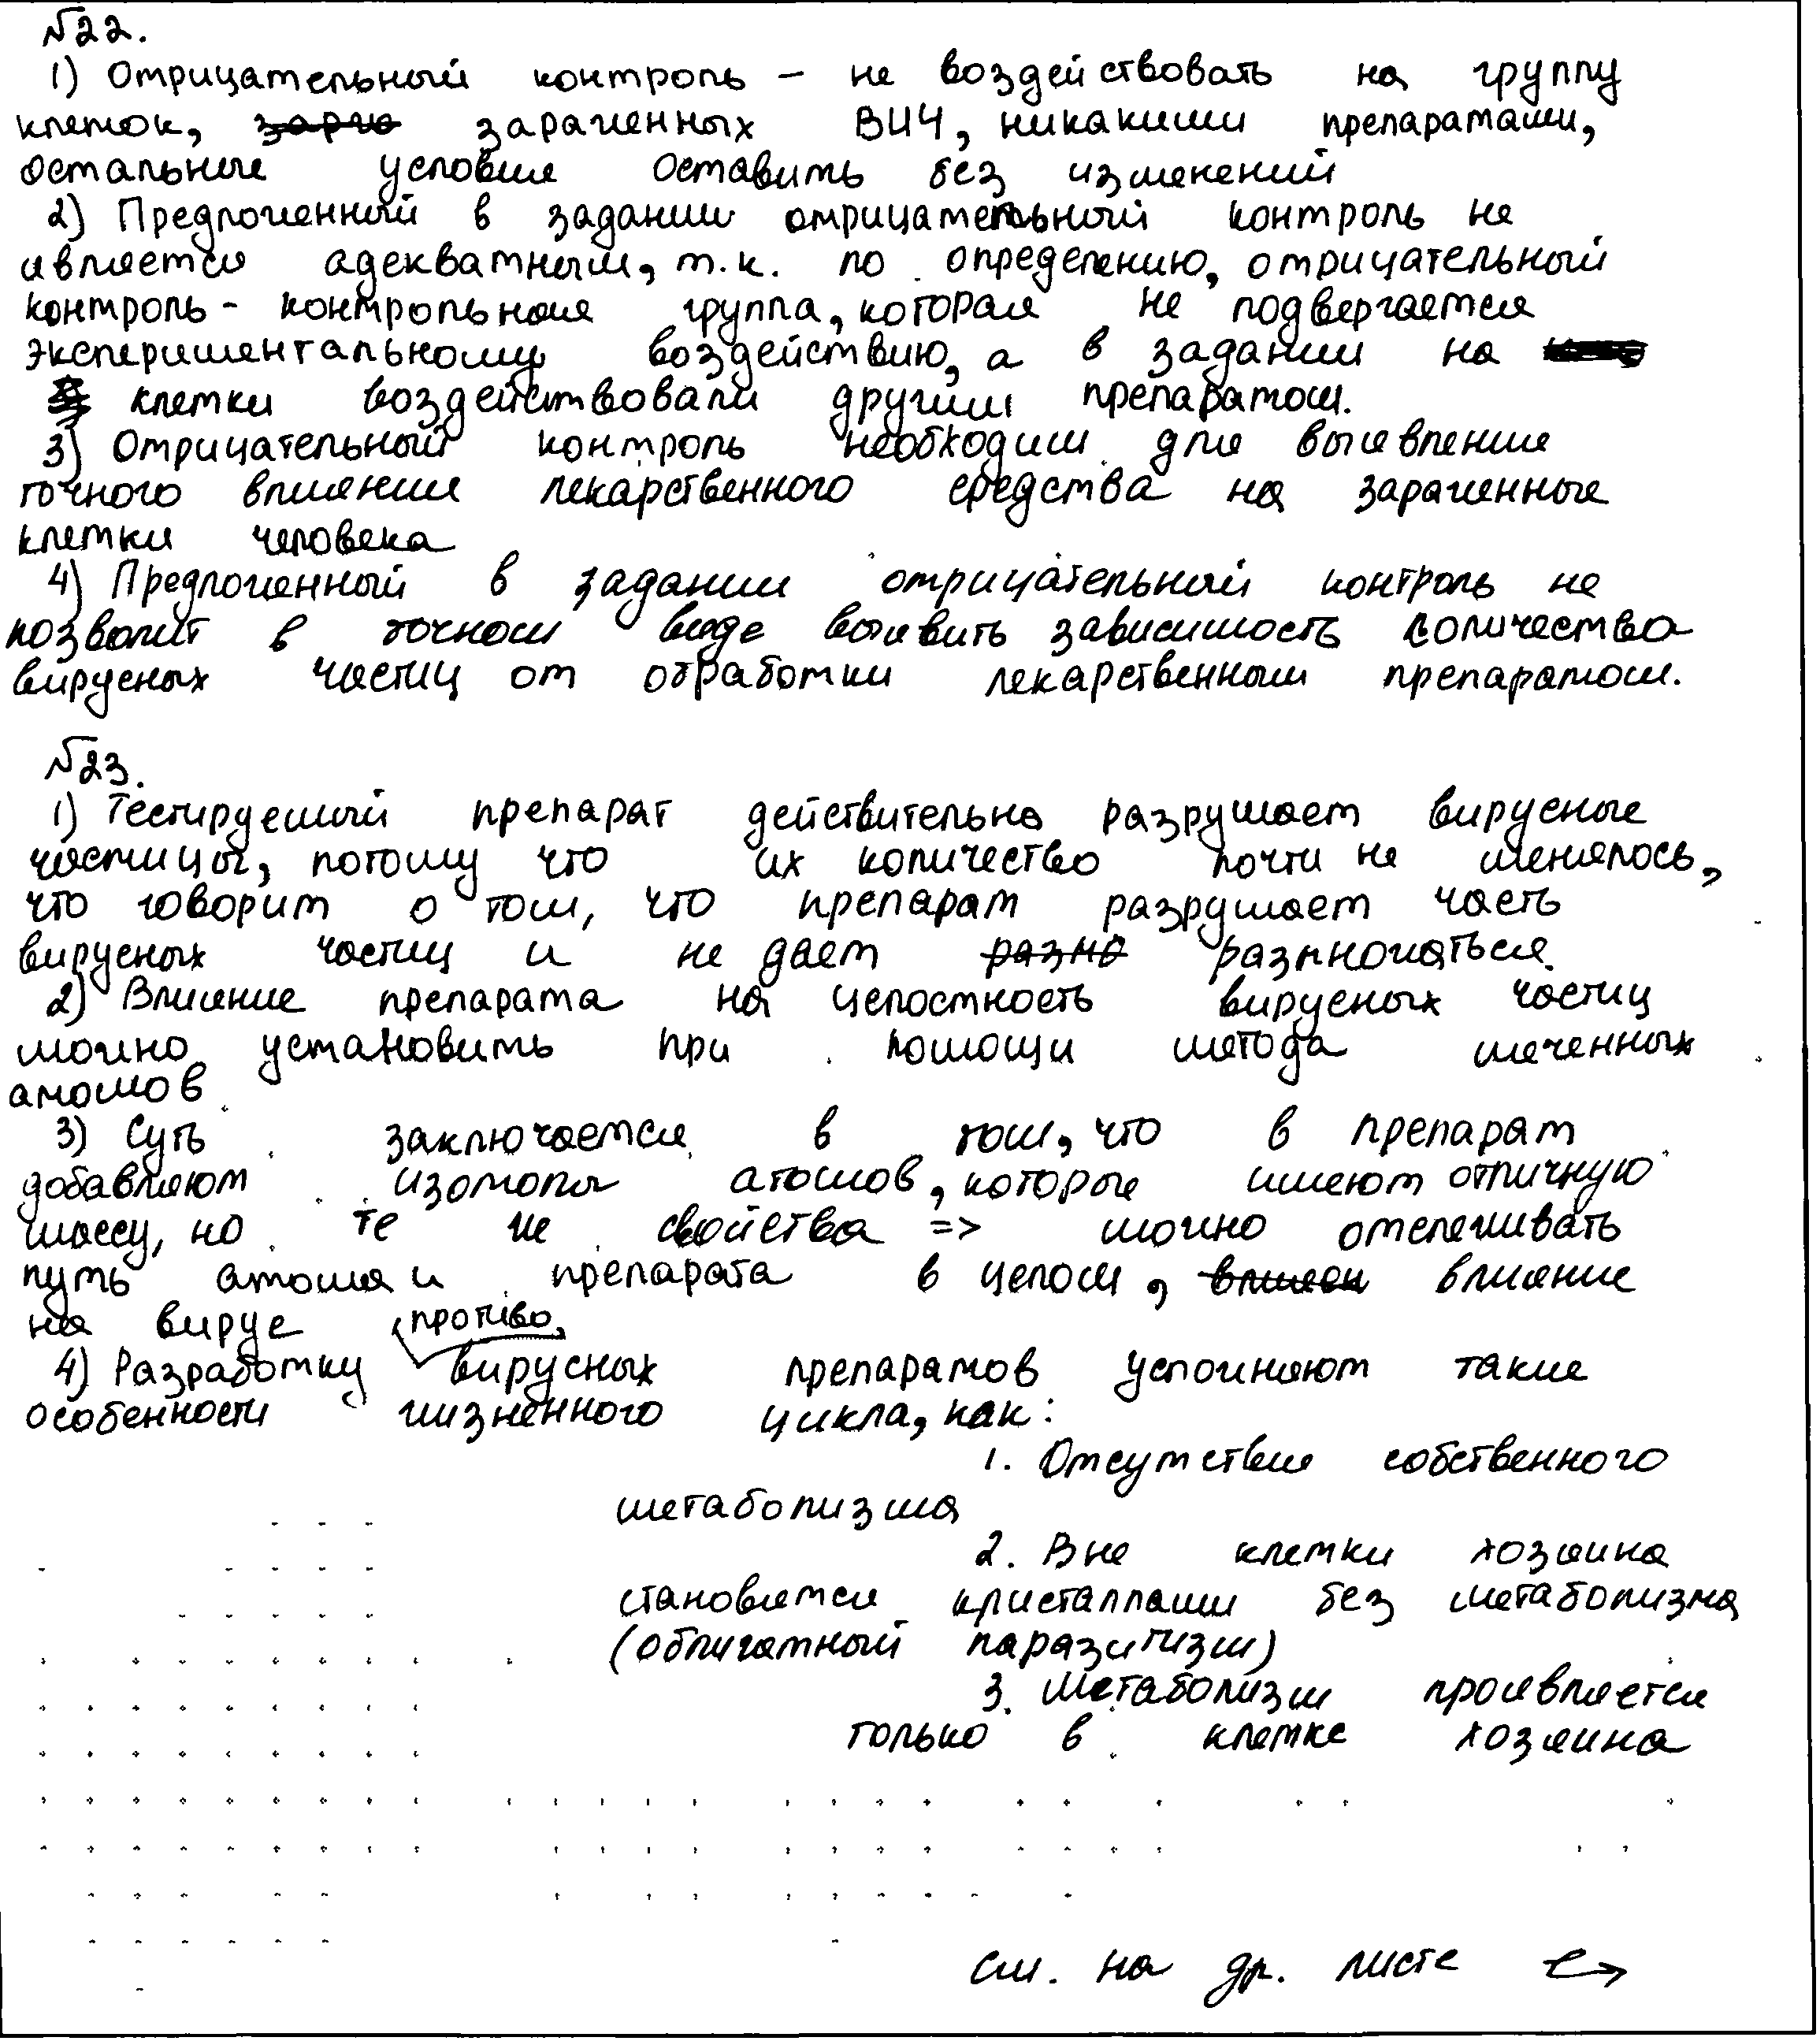 №22.
1) Отрицательный контроль – не воздействовать на группу
клеток, зараженных ВИЧ, никакими препаратами,
остальные условия оставить без изменений
2) Предложенный в задании отрицательный контроль не
является адекватным, т.к. по определению, отрицательный
контроль - контрольная группа, которая не подвергается
экспериментальному воздействию, а в задании на
клетки воздействовали другим препаратом.
3) Отрицательный контроль необходим для выявления
точного влияния лекарственного средства на зараженные
клетки человека
4) Предложенный в задании отрицательный контроль не
позволит в точном виде выявить зависимость количества
вирусных частиц от обработки лекарственным препаратом.
№23.
1) Тестируемый препарат действительно разрушает вирусные
частицы, потому что их количество почти не менялось,
что говорит о том, что препарат разрушает часть
вирусных частиц и не дает размножаться.
2) Влияние препарата на целостность вирусных частиц
можно установить при помощи метода меченных
атомов
3) Суть заключается в том, что в препарат
добавляют изотопы атомов, которые имеют отличную
массу, но те же свойства => можно отслеживать
путь атома и препарата в целом, влияние
на вирус
4) Разработку противовирусных препаратов усложняют такие
особенности жизненного цикла, как:
1. Отсутствие собственного
метаболизма
2. Вне клетки хозяина
становятся кристаллами без метаболизма
(облигатный паразитизм)
3. Метаболизм проявляется
только в клетке хозяина
см. на др. листе →